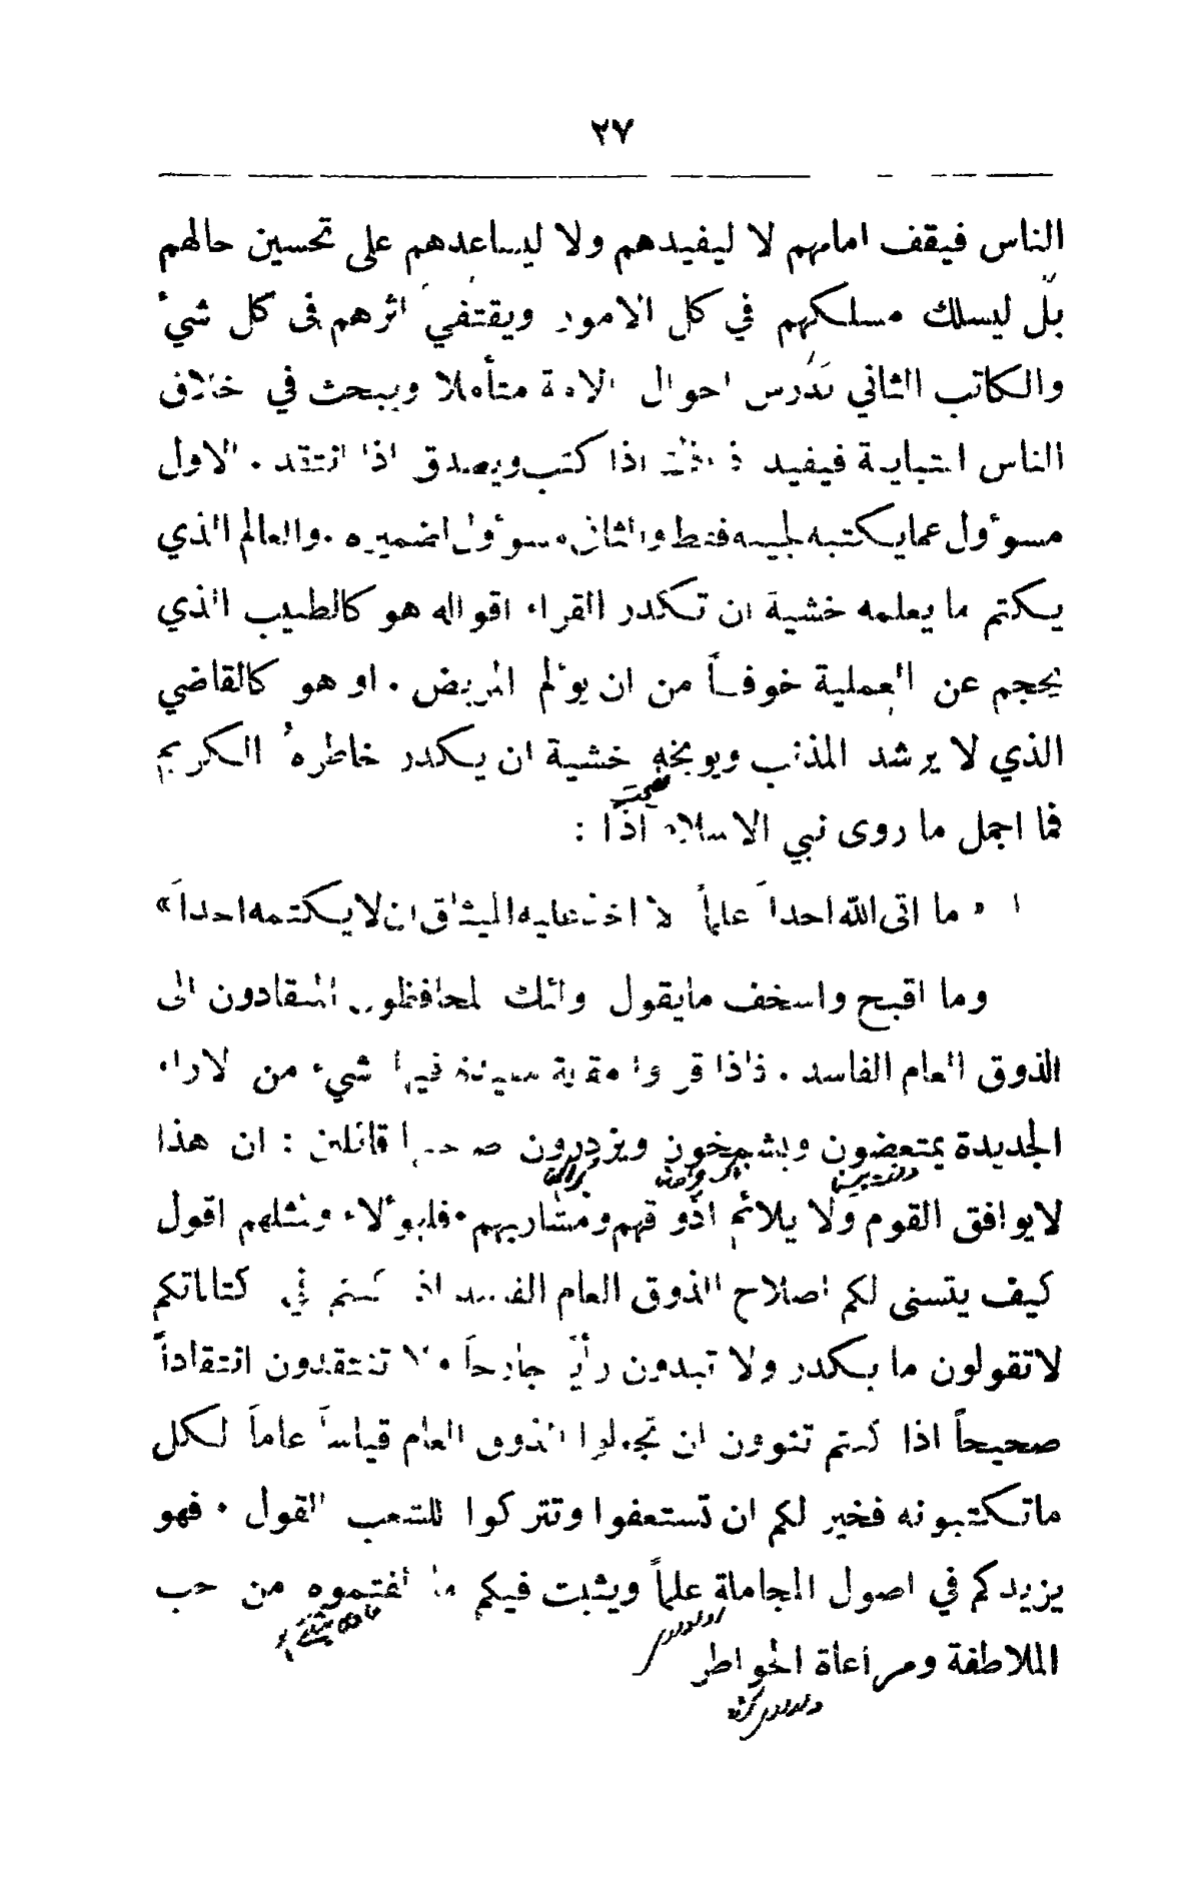 ٢٧
الناس فيقف امامهم لا ليفيدهم ولا ليساعدهم على تحسين حالهم
بل ليسلك مسلكهم في كل الامور ويقتفي اثرهم في كل شيء
والكاتب الثاني يدرس احوال الامة متأملا ويبحث في خلاف
الناس فيفيد اذا كتب ويصدق اذا انتقد . الاول
مسوؤل عما يكتبه لجيبه فقط والثاني مسوؤل لضميره . والعالم الذي
يكتم ما يعلمه خشية ان تكدر القراء اقواله هو كالطبيب الذي
يحجم عن العملية خوفاً من ان يؤلم المريض . او هو كالقاضي
الذي لا يرشد المذنب ويوبخه خشية ان يكدر خاطرهُ الكريم
فما اجمل ما روى نبي الاسلام اذا :
« ما اتى الله احداً علماً الا اخذ عليه الميثاق ان لا يكتمه احداً »
وما اقبح واسخف ما يقول اولئك المحافظون المنقادون الى
الذوق العام الفاسد . فاذا قرأوا مقالة فيها شيء من الاراء
الجديدة يمتعضون ويشمخون ويزدرون قائلين : ان هذا
لا يوافق القوم ولا يلائم اذواقهم ومشاربهم . فلهوألاء ومثلهم اقول
كيف يتسنى لكم اصلاح الذوق العام الفاسد اذا كنتم في كتاباتكم
لا تقولون ما يكدر ولا تبدون رأياً جارحاً ولا تنتقدون انتقاداً
صحيحاً اذا كنتم تنوون ان تجعلوا الذوق العام قياساً عاماً لكل
ما تكتبونه فخير لكم ان تستعفوا وتتركوا للشعب القول . فهو
يزيدكم في اصول المجاملة علماً ويثبت فيكم ما الفتموه من حب
الملاطفة ومراعاة الخواطر